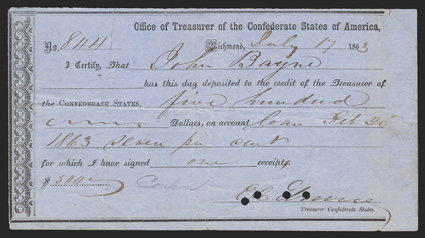 Office of Treasurer of the Confederate States of America,
No. 844 Richmond, July 17 1863
I Certify, That John Bayne
has this day deposited to the credit of the Treasurer of
the Confederate States, five hundred
Dollars, on account loan Feb 20
1863 seven per cent
for which I have signed one receipts.
$ 500
Treasurer Confederate States.